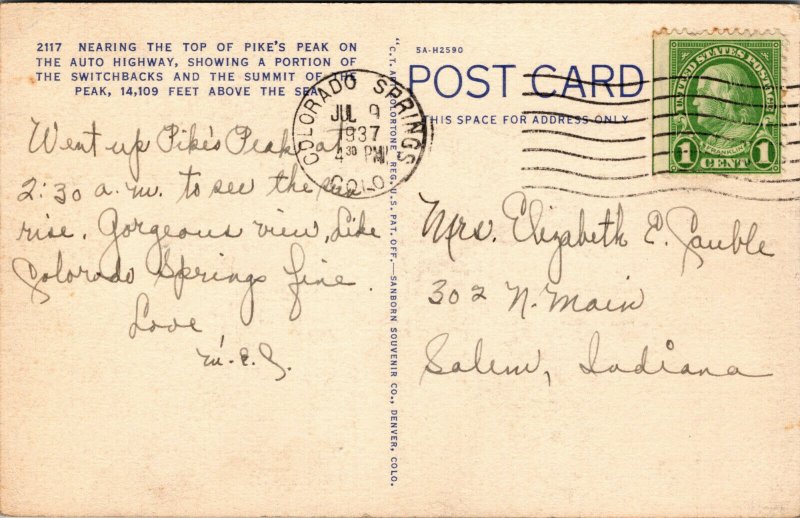 2117 NEARING THE TOP OF PIKE'S PEAK ON
THE AUTO HIGHWAY, SHOWING A PORTION OF
THE SWITCHBACKS AND THE SUMMIT OF THE
PEAK, 14,109 FEET ABOVE THE SEA.
Went up Pike's Peak at
2:30 a.m. to see the sun
rise. Gorgeous view, Like
Colorado Springs fine.
Love
M.E.G.
"C.T. ART COLORTONE" REG. U.S. PAT. OFF.—SANBORN SOUVENIR CO., DENVER, COLO.
5A-H2590
POST CARD
THIS SPACE FOR ADDRESS ONLY
COLORADO SPRINGS
JUL 9
1937
4 30 PM
COLO.
UNITED STATES POSTAGE
FRANKLIN
1 CENT 1
Mrs. Elizabeth E. Gauble
302 N. Main
Salem, Indiana